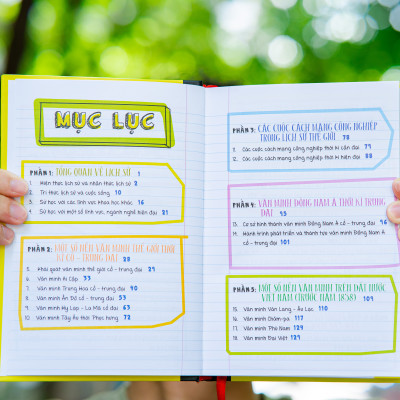 MỤC LỤC
PHẦN 1: TỔNG QUAN VỀ LỊCH SỬ 1
1. Hiện thực lịch sử và nhận thức lịch sử 2
2. Tri thức lịch sử và cuộc sống 10
3. Sử học với các lĩnh vực khoa học khác 16
4. Sử học với một số lĩnh vực, ngành nghề hiện đại 21
PHẦN 2: MỘT SỐ NỀN VĂN MINH THẾ GIỚI THỜI
KÌ CỔ - TRUNG ĐẠI 28
5. Khái quát văn minh thế giới cổ - trung đại 29
6. Văn minh Ai Cập 33
7. Văn minh Trung Hoa cổ - trung đại 40
8. Văn minh Ấn Độ cổ - trung đại 53
9. Văn minh Hy Lạp - La Mã cổ đại 63
10. Văn minh Tây Âu thời Phục hưng 72
PHẦN 3: CÁC CUỘC CÁCH MẠNG CÔNG NGHIỆP
TRONG LỊCH SỬ THẾ GIỚI 78
11. Các cuộc cách mạng công nghiệp thời kì cận đại 79
12. Các cuộc cách mạng công nghiệp thời kì hiện đại 88
PHẦN 4: VĂN MINH ĐÔNG NAM Á THỜI KÌ TRUNG
ĐẠI 95
13. Cơ sở hình thành văn minh Đông Nam Á cổ - trung đại 96
14. Hành trình phát triển và thành tựu văn minh Đông Nam Á
cổ - trung đại 101
PHẦN 5: MỘT SỐ NỀN VĂN MINH TRÊN ĐẤT NƯỚC
VIỆT NAM (TRƯỚC NĂM 1858) 109
15. Văn minh Văn Lang - Âu Lạc 110
16. Văn minh Chăm-pa 117
17. Văn minh Phù Nam 124
18. Văn minh Đại Việt 129